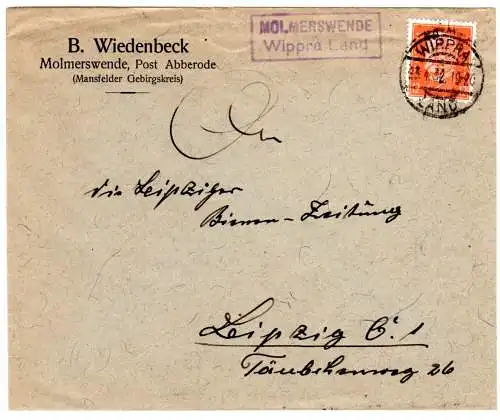 B. Wiedenbeck
Molmerswende, Post Abberode
(Mansfelder Gebirgskreis)
MOLMERSWENDE
Wippra Land
WIPPRA
LAND
An
die Leipziger
Bienen-Zeitung
Leipzig C. 1
Täubchenweg 26